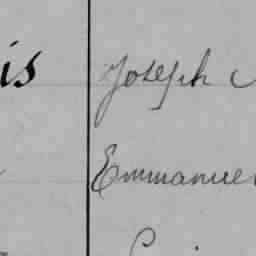 is Joseph
Emmanuel